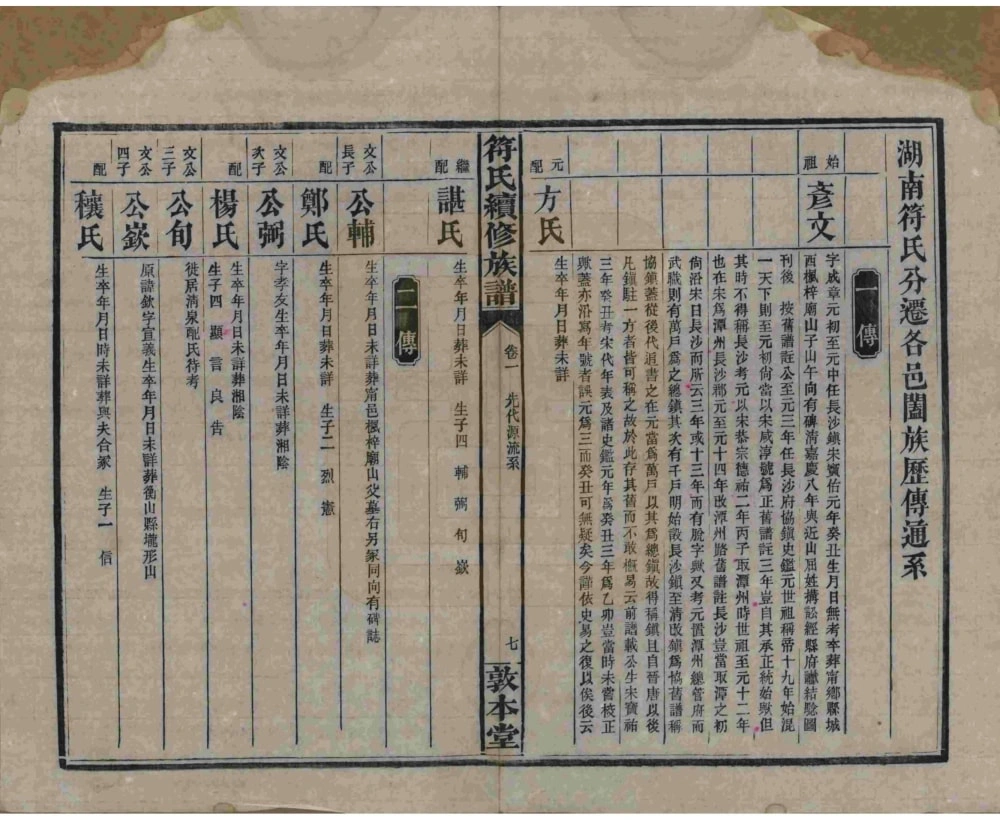 湖南符氏分遷各邑闔族歷傳通系
一傳
始祖
彥文
字成章元初至元中任長沙鎮宋寶佑元年癸丑生月日無考卒葬甯鄉縣城
西楓梓廟山子山午向有碑清嘉慶八年與近山屈姓搆訟經縣府讞結驗圖
刊後　按舊譜註公至元三年任長沙府協鎮史鑑元世祖稱帝十九年始混
一天下則至元初尙當以宋咸淳號爲正舊譜註三年豈自其承正統始歟但
其時不得稱長沙考元以宋恭宗德祐二年丙子取潭州時世祖至元十二年
也在宋爲潭州長沙郡元至元十四年改潭州路舊譜註長沙豈當取潭之初
尙沿宋日長沙而所云三年或十三年而有脫字歟又考元置潭州總管府而
武職則有萬戶爲之總鎮其次有千戶明始設長沙鎮至清改鎮爲協舊譜稱
協鎮蓋從後代追書之在元當爲萬戶以其爲總鎮故得稱鎮且自晉唐以後
凡鎮駐一方者皆可稱之故於此存其舊而不敢概易云前譜載公生宋寶祐
三年癸丑考宋代年表及諸史鑑元年爲癸丑三年爲乙卯豈當時未嘗校正
歟蓋亦沿寫年號者誤元爲三而癸丑可無疑矣今謹依史易之復以俟後云
元配
方氏
生卒年月日葬未詳
符氏續修族譜
卷一　先代源流系
七
敦本堂
繼配
諶氏
生卒年月日葬未詳　生子四　輔　弼　旬　嶔
二傳
文公長子
公輔
生卒年月日未詳葬甯邑楓梓廟山父墓右另冢同向有碑誌
配
鄭氏
生卒年月日葬未詳　生子二　烈　憲
文公次子
公弼
字孝友生卒年月日未詳葬湘陰
配
楊氏
生卒年月日未詳葬湘陰
生子四　顯　言　良　告
文公三子
公旬
徙居清泉配氏待考
文公四子
公嶔
原諱欽字宣義生卒年月日未詳葬衡山縣壠形山
配
穰氏
生卒年月日時未詳葬與夫合冢　生子一　信